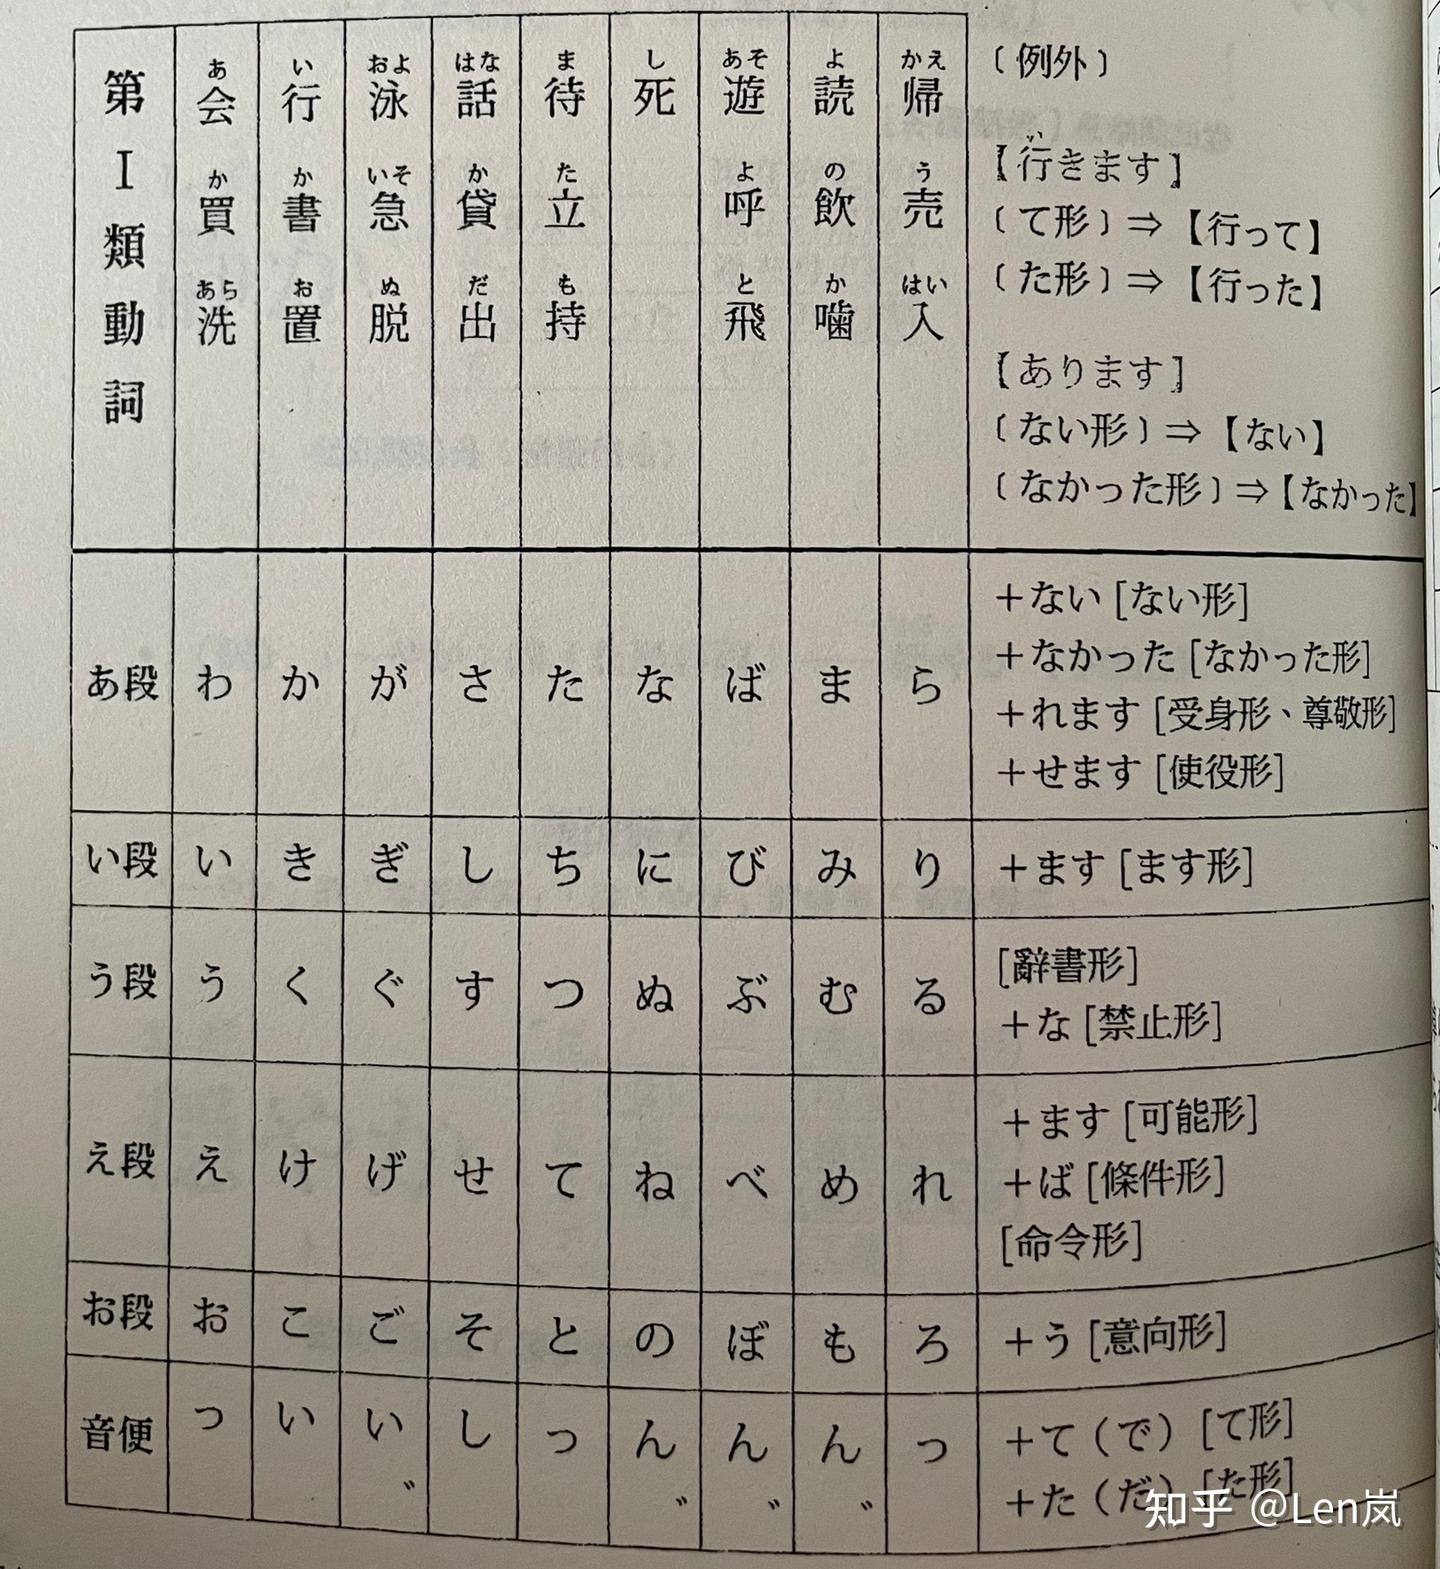 第Ⅰ類動詞
会 買 洗
あ か あら
行 書 置
い か お
泳 急 脱
およ いそ ぬ
話 貸 出
はな か だ
待 立 持
ま た も
死
し
遊 呼 飛
あそ よ と
読 飲 噛
よ の か
帰 売 入
かえ う はい
〔例外〕
【行きます】
い
〔て形〕⇒【行って】
〔た形〕⇒【行った】
【あります】
〔ない形〕⇒【ない】
〔なかった形〕⇒【なかった】
あ段 わ か が さ た な ば ま ら
+ない [ない形]
+なかった [なかった形]
+れます [受身形、尊敬形]
+せます [使役形]
い段 い き ぎ し ち に び み り +ます [ます形]
う段 う く ぐ す つ ぬ ぶ む る
[辭書形]
+な [禁止形]
え段 え け げ せ て ね べ め れ
+ます [可能形]
+ば [條件形]
[命令形]
お段 お こ ご そ と の ぼ も ろ +う [意向形]
音便 っ い い゛ し っ ん゛ ん゛ ん゛ っ
+て（で） [て形]
+た（だ） [た形]
知乎 @Len岚